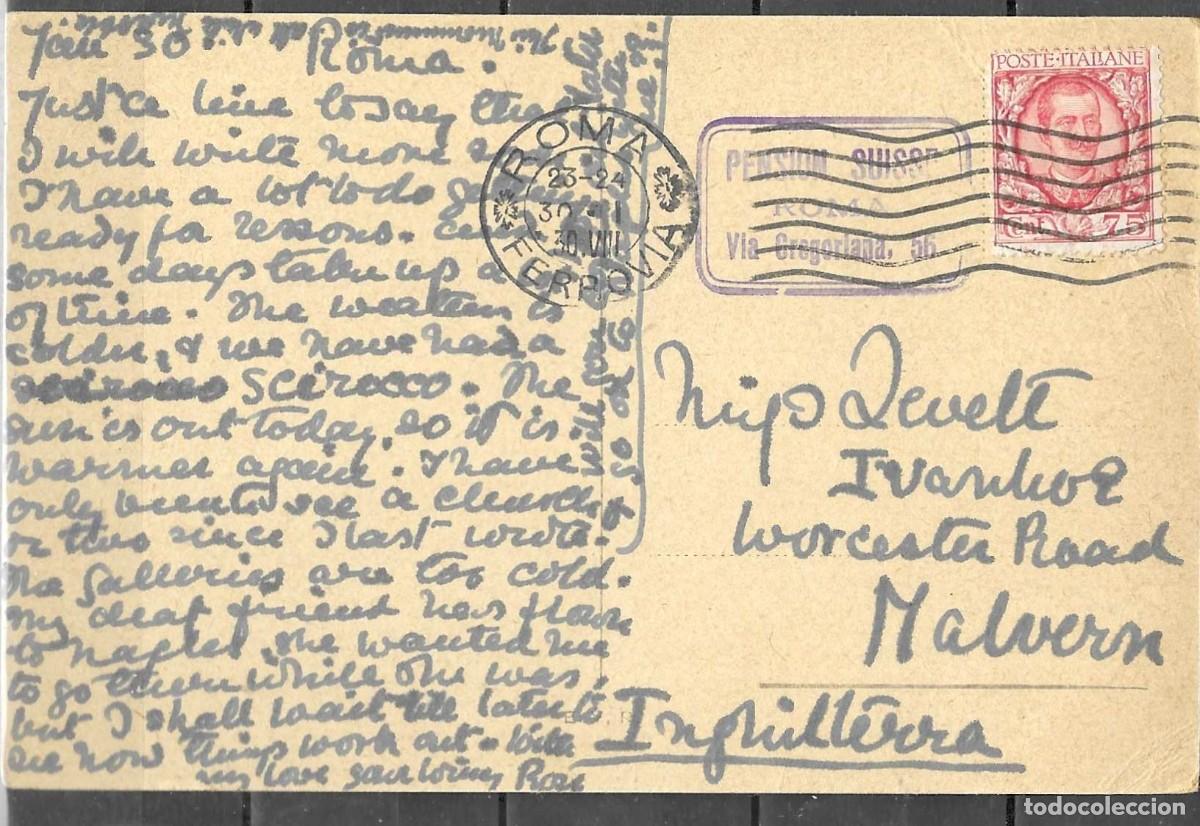 Jan 30 Roma.
Just a line to say that
I will write more soon.
I have a lot to do
ready for lessons.
some days takes up a
of time. The weather is
colder, & we have had a
scirocco. The
sun is out today, so it is
warmer again. I have
only been to see a church
or two since I last wrote.
The galleries are too cold.
my deaf friend has flown
to Naples, she wanted me
to go there while she was,
but I shall wait till later to
see how things work out. With
my love your loving Rose
This
all
will you
ROMA
23-24
30
30 VIII
FERROVIA
PENSION SUISSE
ROMA
Via Gregoriana, 56
POSTE·ITALIANE
Cent. 75
Miss Levett
Ivanhoe
Worcester Road
Malvern
Inghilterra
todocoleccion